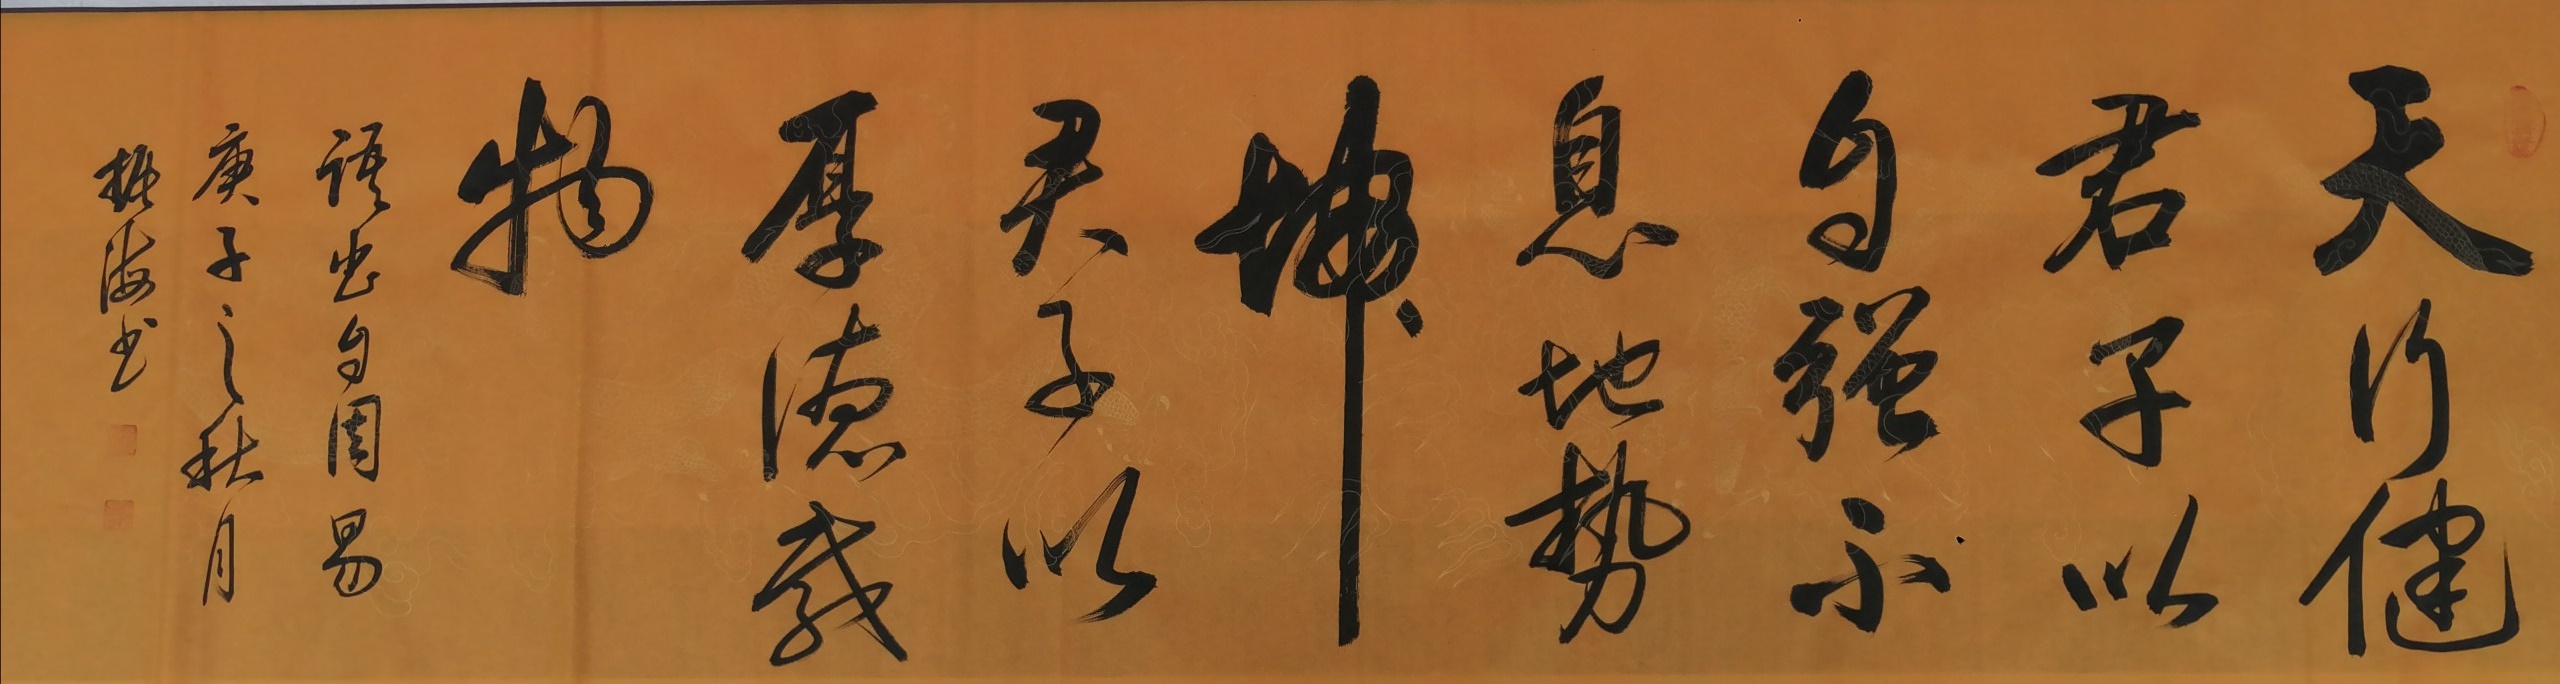 天行健
君子以
自强不
息地势
坤
君子以
厚德载
物
语出自周易
庚子之秋月
振海书